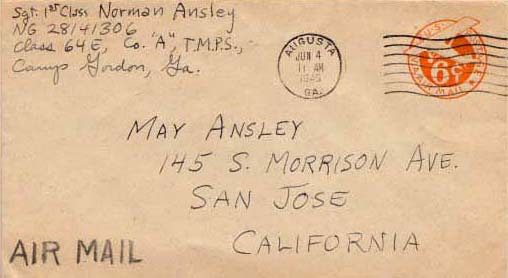 Sgt. 1st Class Norman Ansley
NG 28141306
Class 64E, Co. "A", T.M.P.S.,
Camp Gordon, Ga.
AUGUSTA
JUN 4
11 AM
GA.
U.S.
6¢
AIR MAIL
MAY ANSLEY
145 S. MORRISON AVE.
SAN JOSE
CALIFORNIA
AIR MAIL